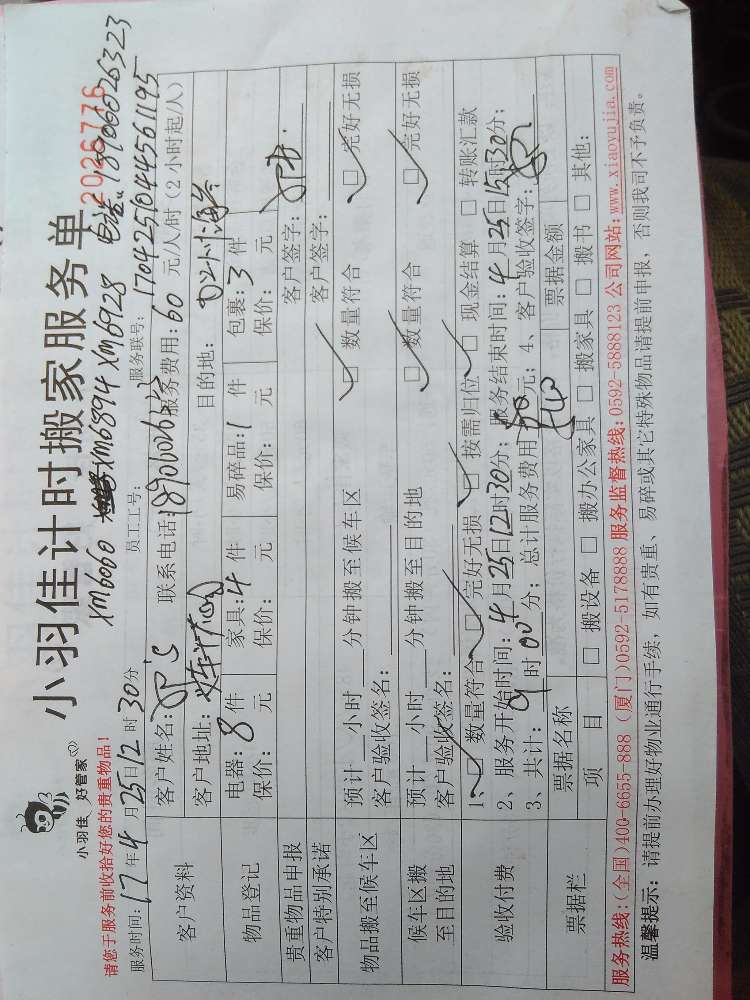 小羽佳 好管家
小羽佳计时搬家服务单
2026776
请您于服务前收拾好您的贵重物品!
XM6060 XM6894 XM6928 电话:18906026323
员工工号:
服务时间:17年4月25日12时30分 服务联号:1704251044561195
客户资料 客户姓名: 联系电话:18906026323 服务费用:60元/人/时(2小时起/人)
客户地址: 目的地:
物品登记 电器:8件 家具:4件 易碎品:1件 包裹:3件
保价: 元 保价: 元 保价: 元 保价: 元
贵重物品申报 客户签字:
客户特别承诺 客户签字:
物品搬至候车区 预计 小时 分钟搬至候车区 □数量符合 □完好无损
客户验收签名:
候车区搬至目的地 预计 小时 分钟搬至目的地 □数量符合 □完好无损
客户验收签名:
验收付费 1、□数量符合 □完好无损 □按需归位 □现金结算 □转账汇款
2、服务开始时间:4月25日12时30分; 服务结束时间:4月25日15时30分;
3、共计: 时00分; 总计服务费用 元; 4、客户验收签字:
票据栏 票据名称 票据金额
项目 □搬设备 □搬办公家具 □搬家具 □搬书 □其他:
服务热线:(全国)400-6655-888 (厦门)0592-5178888 服务监督热线:0592-5888123 公司网站:www.xiaoyujia.com
温馨提示:请提前办理好物业通行手续,如有贵重、易碎或其它特殊物品请提前申报,否则我司不予负责。